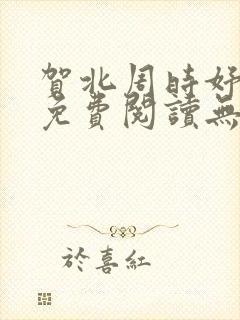 賀北周時好
免費閱讀無
於喜紅